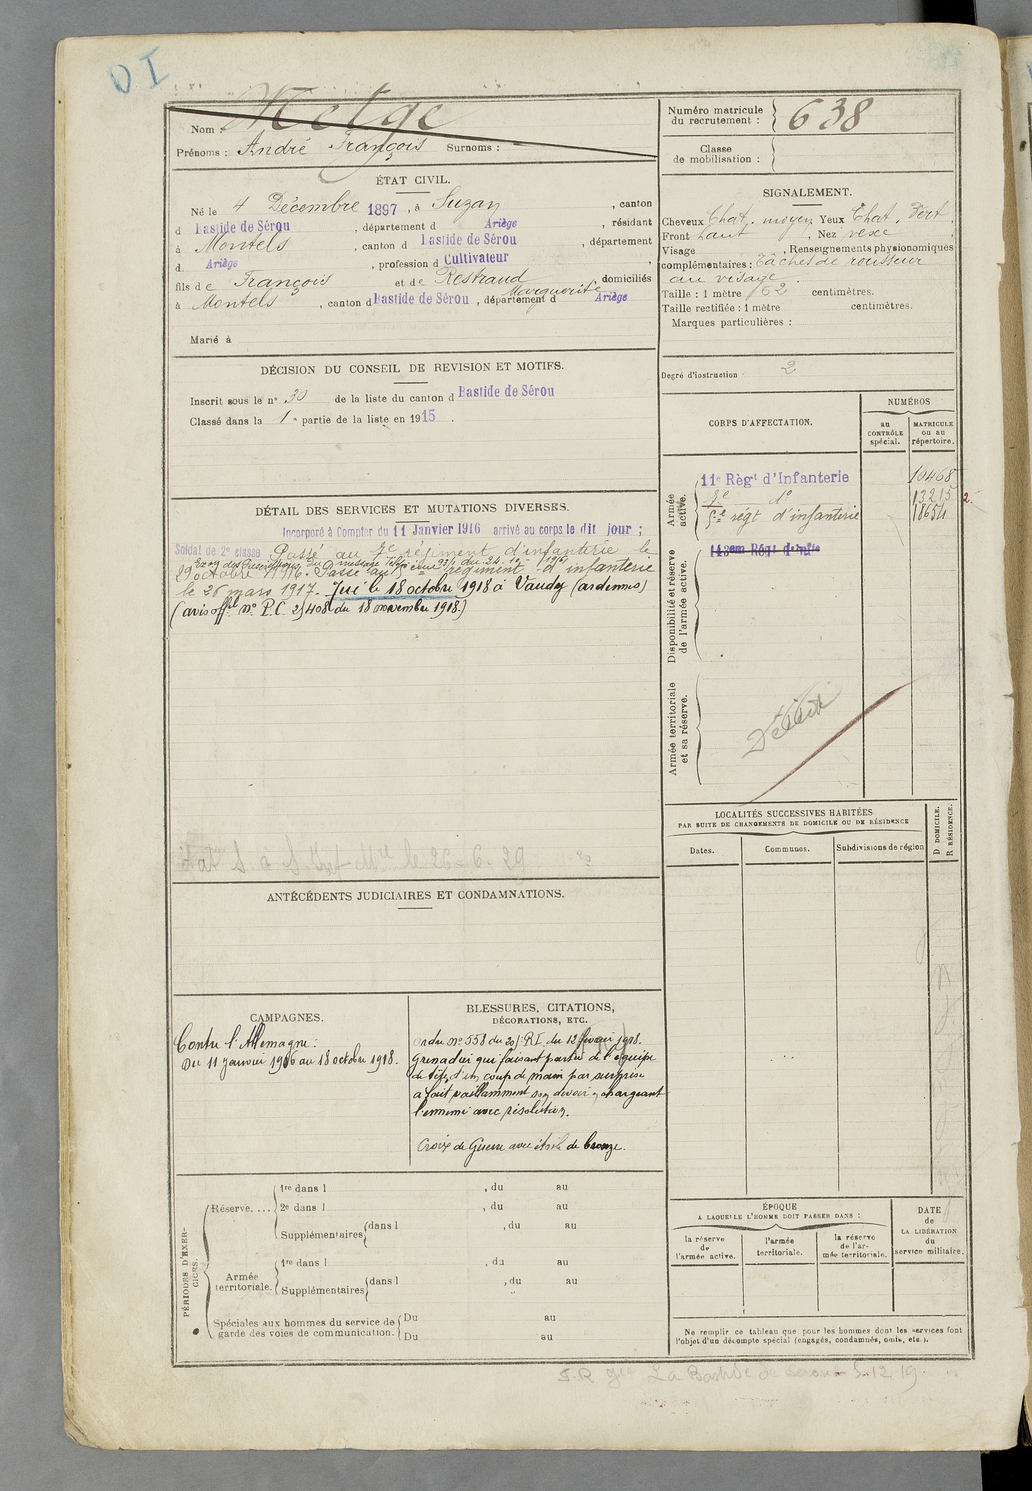 DI
Nom : Metge
Prénoms : André François Surnoms :
Numéro matricule du recrutement : 638
Classe de mobilisation :
ÉTAT CIVIL.
Né le 4 Décembre 1897, à Suzan, canton
d Bastide de Sérou, département d Ariège, résidant
à Montels, canton d Bastide de Sérou, département
d Ariège, profession d Cultivateur,
fils de François et de Restraud Marguerite domiciliés
à Montels, canton d Bastide de Sérou, département d Ariège
Marié à
SIGNALEMENT.
Cheveux Chat. moyen Yeux Chat. Vert,
Front haut, Nez vexe,
Visage , Renseignements physionomiques
complémentaires : Tâches de rousseur
au visage
Taille : 1 mètre 62 centimètres.
Taille rectifiée : 1 mètre centimètres.
Marques particulières :
Degré d'instruction 2
DÉCISION DU CONSEIL DE REVISION ET MOTIFS.
Inscrit sous le n° 30 de la liste du canton d Bastide de Sérou
Classé dans la 1e partie de la liste en 1915.
DÉTAIL DES SERVICES ET MUTATIONS DIVERSES.
Incorporé à Compter du 11 Janvier 1916 arrivé au corps le dit jour ;
Soldat de 2e classe Passé au 7e régiment d'infanterie le
29 octobre 1916. Passé au régiment d'infanterie
le 26 mars 1917. Tué le 18 octobre 1918 à Vandy (ardennes)
(avis offel no P.C. 2)408 du 18 novembre 1918.)
CORPS D'AFFECTATION.
NUMÉROS
au CONTRÔLE spécial.
MATRICULE ou au répertoire.
Armée active.
11e Régt d'Infanterie 10468
7e do 13215 2.
5e régt d'infanterie 18654
Disponibilité et réserve de l'armée active.
143em Régt d'Infie
Armée territoriale et sa réserve.
Décédé
LOCALITÉS SUCCESSIVES HABITÉES
PAR SUITE DE CHANGEMENTS DE DOMICILE OU DE RÉSIDENCE
Dates.
Communes.
Subdivisions de région
D DOMICILE.
R RÉSIDENCE.
ANTÉCÉDENTS JUDICIAIRES ET CONDAMNATIONS.
CAMPAGNES.
Contre l'Allemagne :
Du 11 janvier 1916 au 18 octobre 1918.
BLESSURES, CITATIONS,
DÉCORATIONS, ETC.
Ordre no 558 du 201e R.I. du 12 février 1918.
Grenadier qui faisant partie de l'équipe
de tête d'un coup de main par surprise
a fait vaillamment son devoir en chargeant
l'ennemi avec résolution.
Croix de Guerre avec étoile de bronze.
PÉRIODES D'EXERCICES.
Réserve. ...
1re dans l , du au
2e dans l , du au
Supplémentaires dans l , du au
Armée territoriale.
1re dans l , du au
Supplémentaires dans l , du au
Spéciales aux hommes du service de garde des voies de communication.
Du au
Du au
ÉPOQUE
A LAQUELLE L'HOMME DOIT PASSER DANS :
la réserve de l'armée active.
l'armée territoriale.
la réserve de l'armée territoriale.
DATE de LA LIBÉRATION du service militaire.
Ne remplir ce tableau que pour les hommes dont les services font
l'objet d'un décompte spécial (engagés, condamnés, omis, etc.).
S.R gie La Bastide de Serou 5.12.19